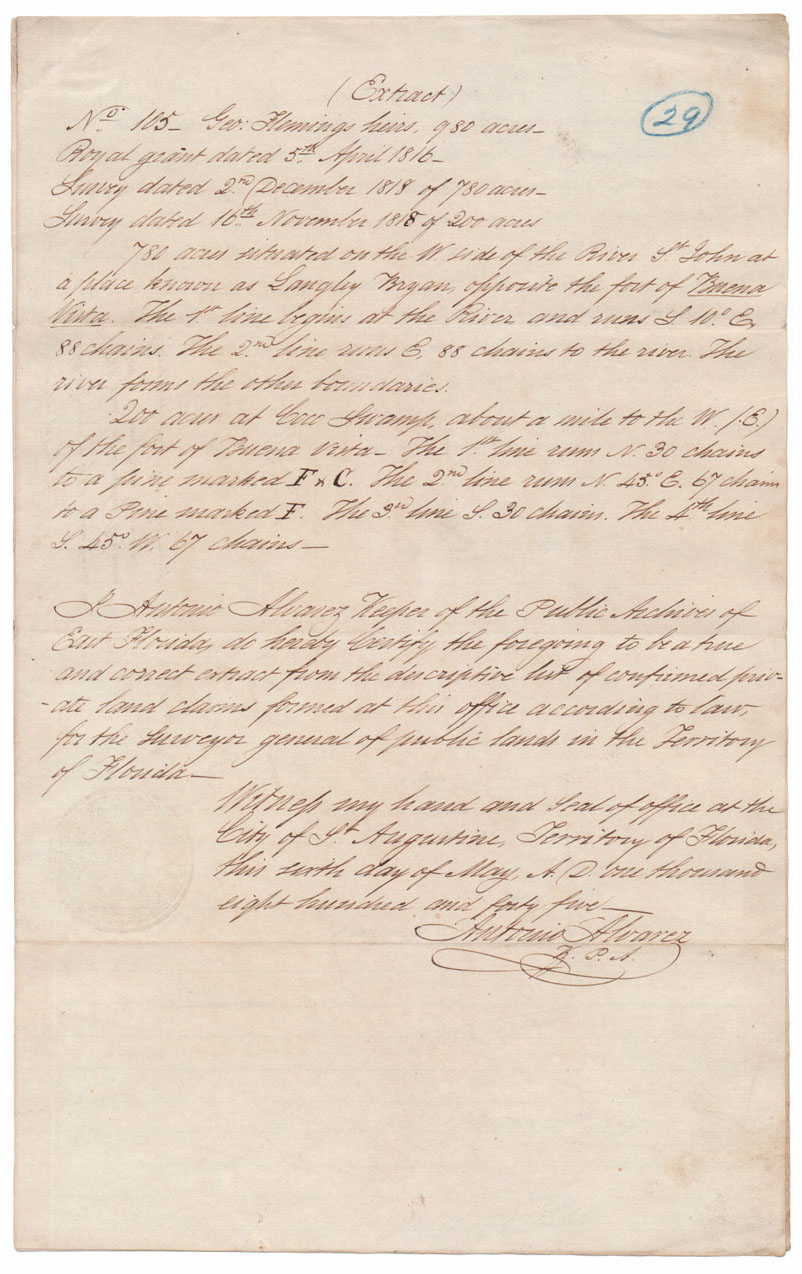 (Extract)
29
No. 105_ Geo: Flemings heirs, 980 acres_
Royal grant dated 5th April 1816_
Survey dated 2nd December 1818 of 780 acres_
Survey dated 16th November 1818 of 200 acres
780 acres situated on the W. side of the River St. John at
a place known as Langley Bryan, opposite the fort of Buena
Vista. The 1st line begins at the River, and runs S. 10° E,
88 chains. The 2nd line runs E. 88 chains to the river. The
river forms the other boundaries.
200 acres at Cow Swamp, about a mile to the W. (E.)
of the fort of Buena Vista_ The 1st line runs N. 30 chains
to a pine marked F x C. The 2nd line runs N. 45° E. 67 chains
to a Pine marked F. The 3rd line S. 30 chains. The 4th line
S. 45° W. 67 chains_
I Antonio Alvarez Keeper of the Public Archives of
East Florida, do hereby Certify the foregoing to be a true
and correct extract from the descriptive list of confirmed priv-
-ate land claims formed at this office according to law,
for the Surveyor general of public lands in the Territory
of Florida_
Witness my hand and Seal of office at the
City of St. Augustine, Territory of Florida,
this sixth day of May, A. D. one thousand
eight hundred and forty five_
Antonio Alvarez
K. P. A.